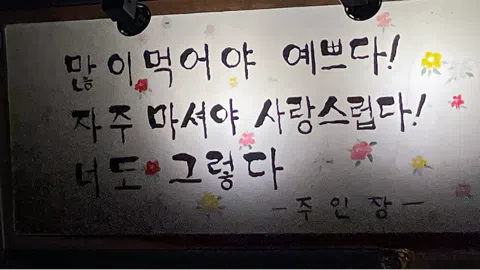 많이 먹어야 예쁘다!
자주 마셔야 사랑스럽다!
너도 그렇다
- 주인장 -